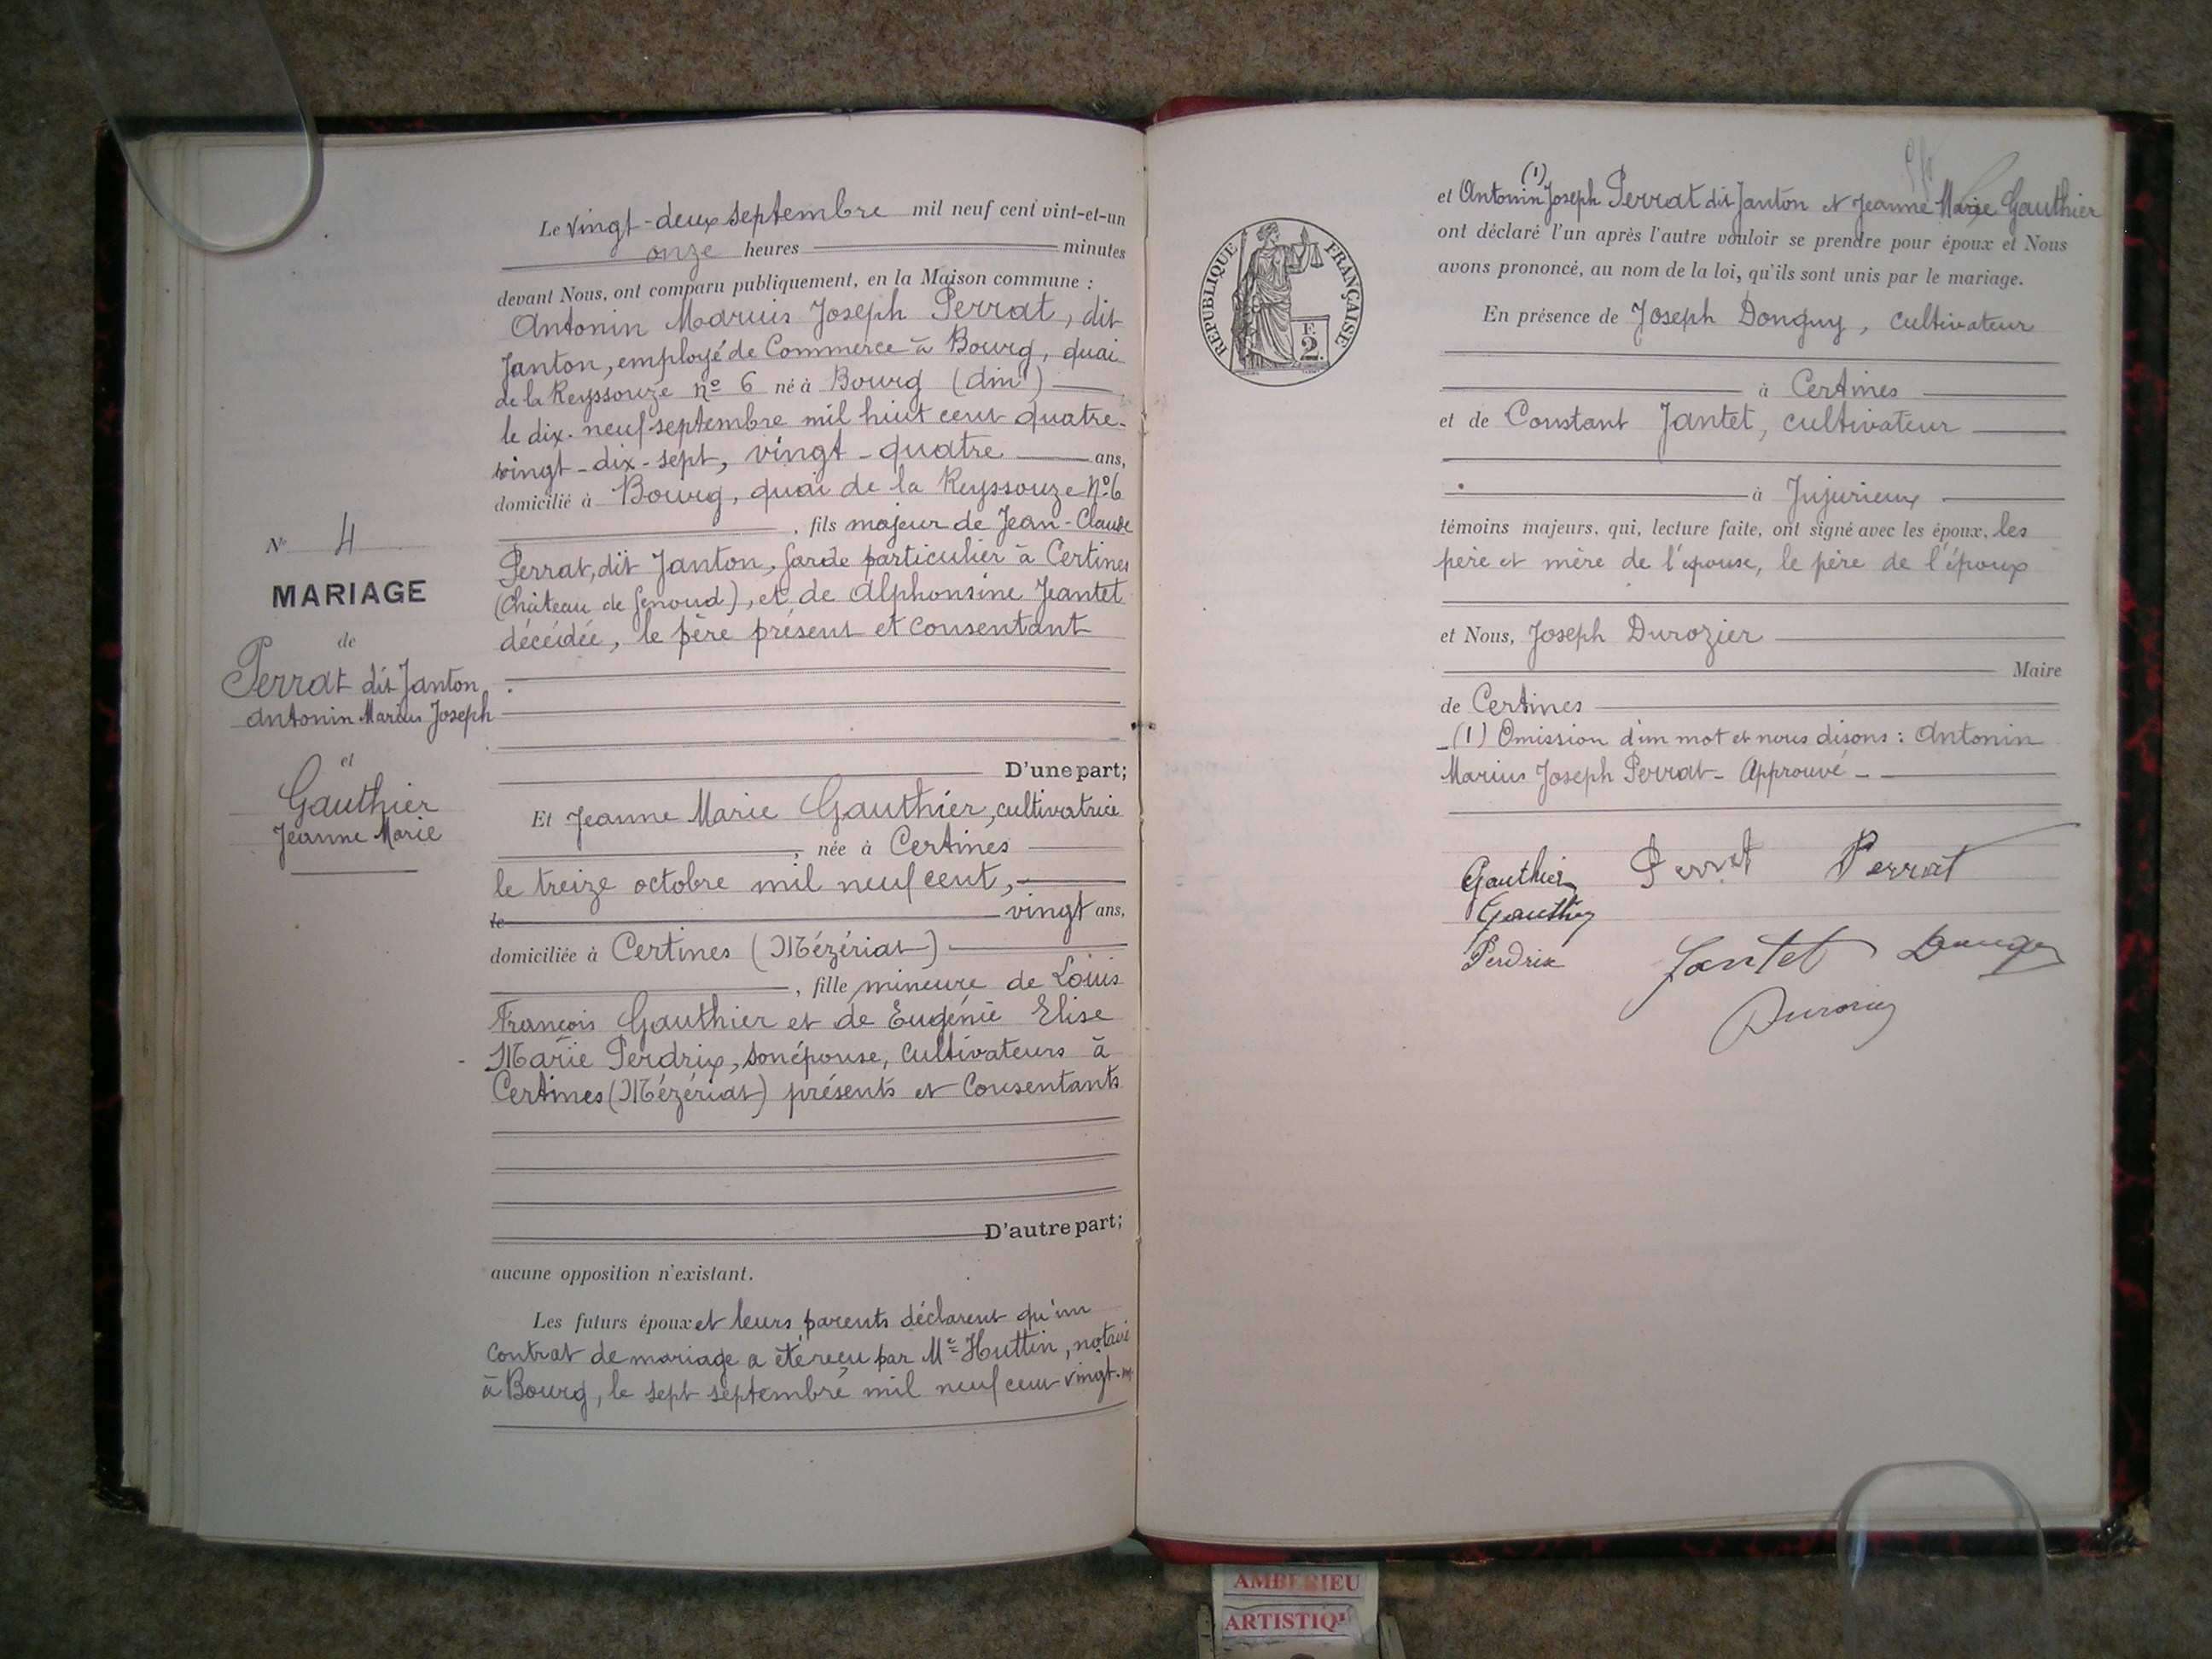 Le vingt-deux septembre mil neuf cent vint-et-un
onze heures minutes
devant Nous, ont comparu publiquement, en la Maison commune :
Antonin Maruis Joseph Perrat, dit
Janton, employé de Commerce à Bourg, quai
de la Reyssouze nº 6 né à Bourg (Ain)
le dix-neuf septembre mil huit cent quatre-
vingt-dix-sept, vingt-quatre ans,
domicilié à Bourg, quai de la Reyssouze Nº 6
, fils majeur de Jean-Claude
Perrat, dit Janton, garde particulier à Certines
(Château de Genoud), et de Alphonsine Jeantet
décédée, le père présent et consentant
Nº 4
MARIAGE
de
Perrat dit Janton
Antonin Marius Joseph
et
Gauthier
Jeanne Marie
D'une part;
Et Jeanne Marie Gauthier, cultivatrice
, née à Certines
le treize octobre mil neuf cent,
le vingt ans,
domiciliée à Certines (Mézériat)
, fille mineure de Louis
François Gauthier et de Eugénie Elise
Marie Perdrix, son épouse, cultivateurs à
Certines (Mézériat) présents et Consentants
D'autre part;
aucune opposition n'existant.
Les futurs époux et leurs parents déclarent qu'un
contrat de mariage a été reçu par Me Huttin, notaire
à Bourg, le sept septembre mil neuf cent vingt-un
RÉPUBLIQUE FRANÇAISE
F.
2.
(1)
et Antonin Joseph Perrat dit Janton et Jeanne Marie Gauthier
ont déclaré l'un après l'autre vouloir se prendre pour époux et Nous
avons prononcé, au nom de la loi, qu'ils sont unis par le mariage.
En présence de Joseph Donguy, cultivateur
à Certines
et de Constant Jantet, cultivateur
à Jujurieux
témoins majeurs, qui, lecture faite, ont signé avec les époux, les
père et mère de l'épouse, le père de l'époux
et Nous, Joseph Durozier
Maire
de Certines
(1) Omission d'un mot et nous disons : Antonin
Marius Joseph Perrat - Approuvé -
Gauthier Perrat Perrat
Gauthier
Perdrix Jantet Donguy
Durozier
AMBERIEU
ARTISTIQ